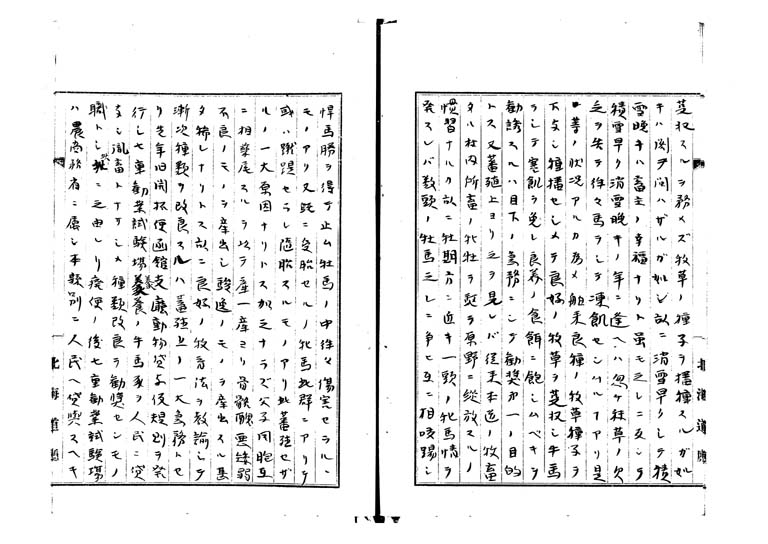 芟収スルヲ務メズ牧草ノ種子ヲ播種スルガ如
キハ関ヲ聞ハザルガ如シ故ニ消雪早クシテ積
雪晩キハ畜主ノ幸福ナリト雖モ之レニ反シテ
積雪早ク消雪晩キノ年ニ逢ヘハ忽チ秣草ノ欠
乏ヲ告テ徃々馬ヲシテ凍飢セシムルアリ是
等ノ状況アルカ為メ舶来良種ノ牧草種子ヲ
下支シ種播セシメテ良好ノ牧草ヲ芟収シ牛馬
ヲシテ寒飢ヲ免レ良養ノ食餌ニ飽シムベキヲ
勧誘スルハ目下ノ急務ニシテ勧奨第一ノ目的
トス又蕃殖上ヨリ之ヲ見レバ従来本道ノ牧畜
タル社内所畜ノ牝牡ヲ挙ヲ原野ニ縦放スルノ
慣習ナルカ故ニ牡期方ニ近キ一頭ノ牝馬情ヲ
発スレバ数頭ノ牡馬之レニ争ヒ互ニ相咬踢シ
悍馬勝ヲ得テ止ム牡馬ノ中徃々傷害セラルヽ
モノアリ又既ニ受胎セルノ牝馬此群ニアリテ
或ハ蹴踶セラレ堕胎スルモノアリ此蕃殖セザ
ルノ一大原因ナリトス加之ナラズ父子同胞互
ニ相孳尾スルヲ以テ産一産ヨリ骨骸醜悪矮弱
不良ノモノヲ産出シ駿逸ノモノヲ産出スル甚
タ稀レナリトス故ニ良好ノ牧畜法ヲ教諭シテ
漸次種類ヲ改良スルハ蕃殖上ノ一大急務トセ
リ先年旧開拓使函館支庁動物貸予仮規則ヲ発
行シ七重勧業試験場養ノ牛馬豕ヲ人民ニ貸
支シ乳畜トナサシメ種類改良ヲ勧奨センモノ
職トシテ此ニ之由レリ廃使ノ後七重勧業試験場
ハ農商務省ニ属シ本類別ニ人民ヘ貸与スヘキ
北海道庁
北海道庁